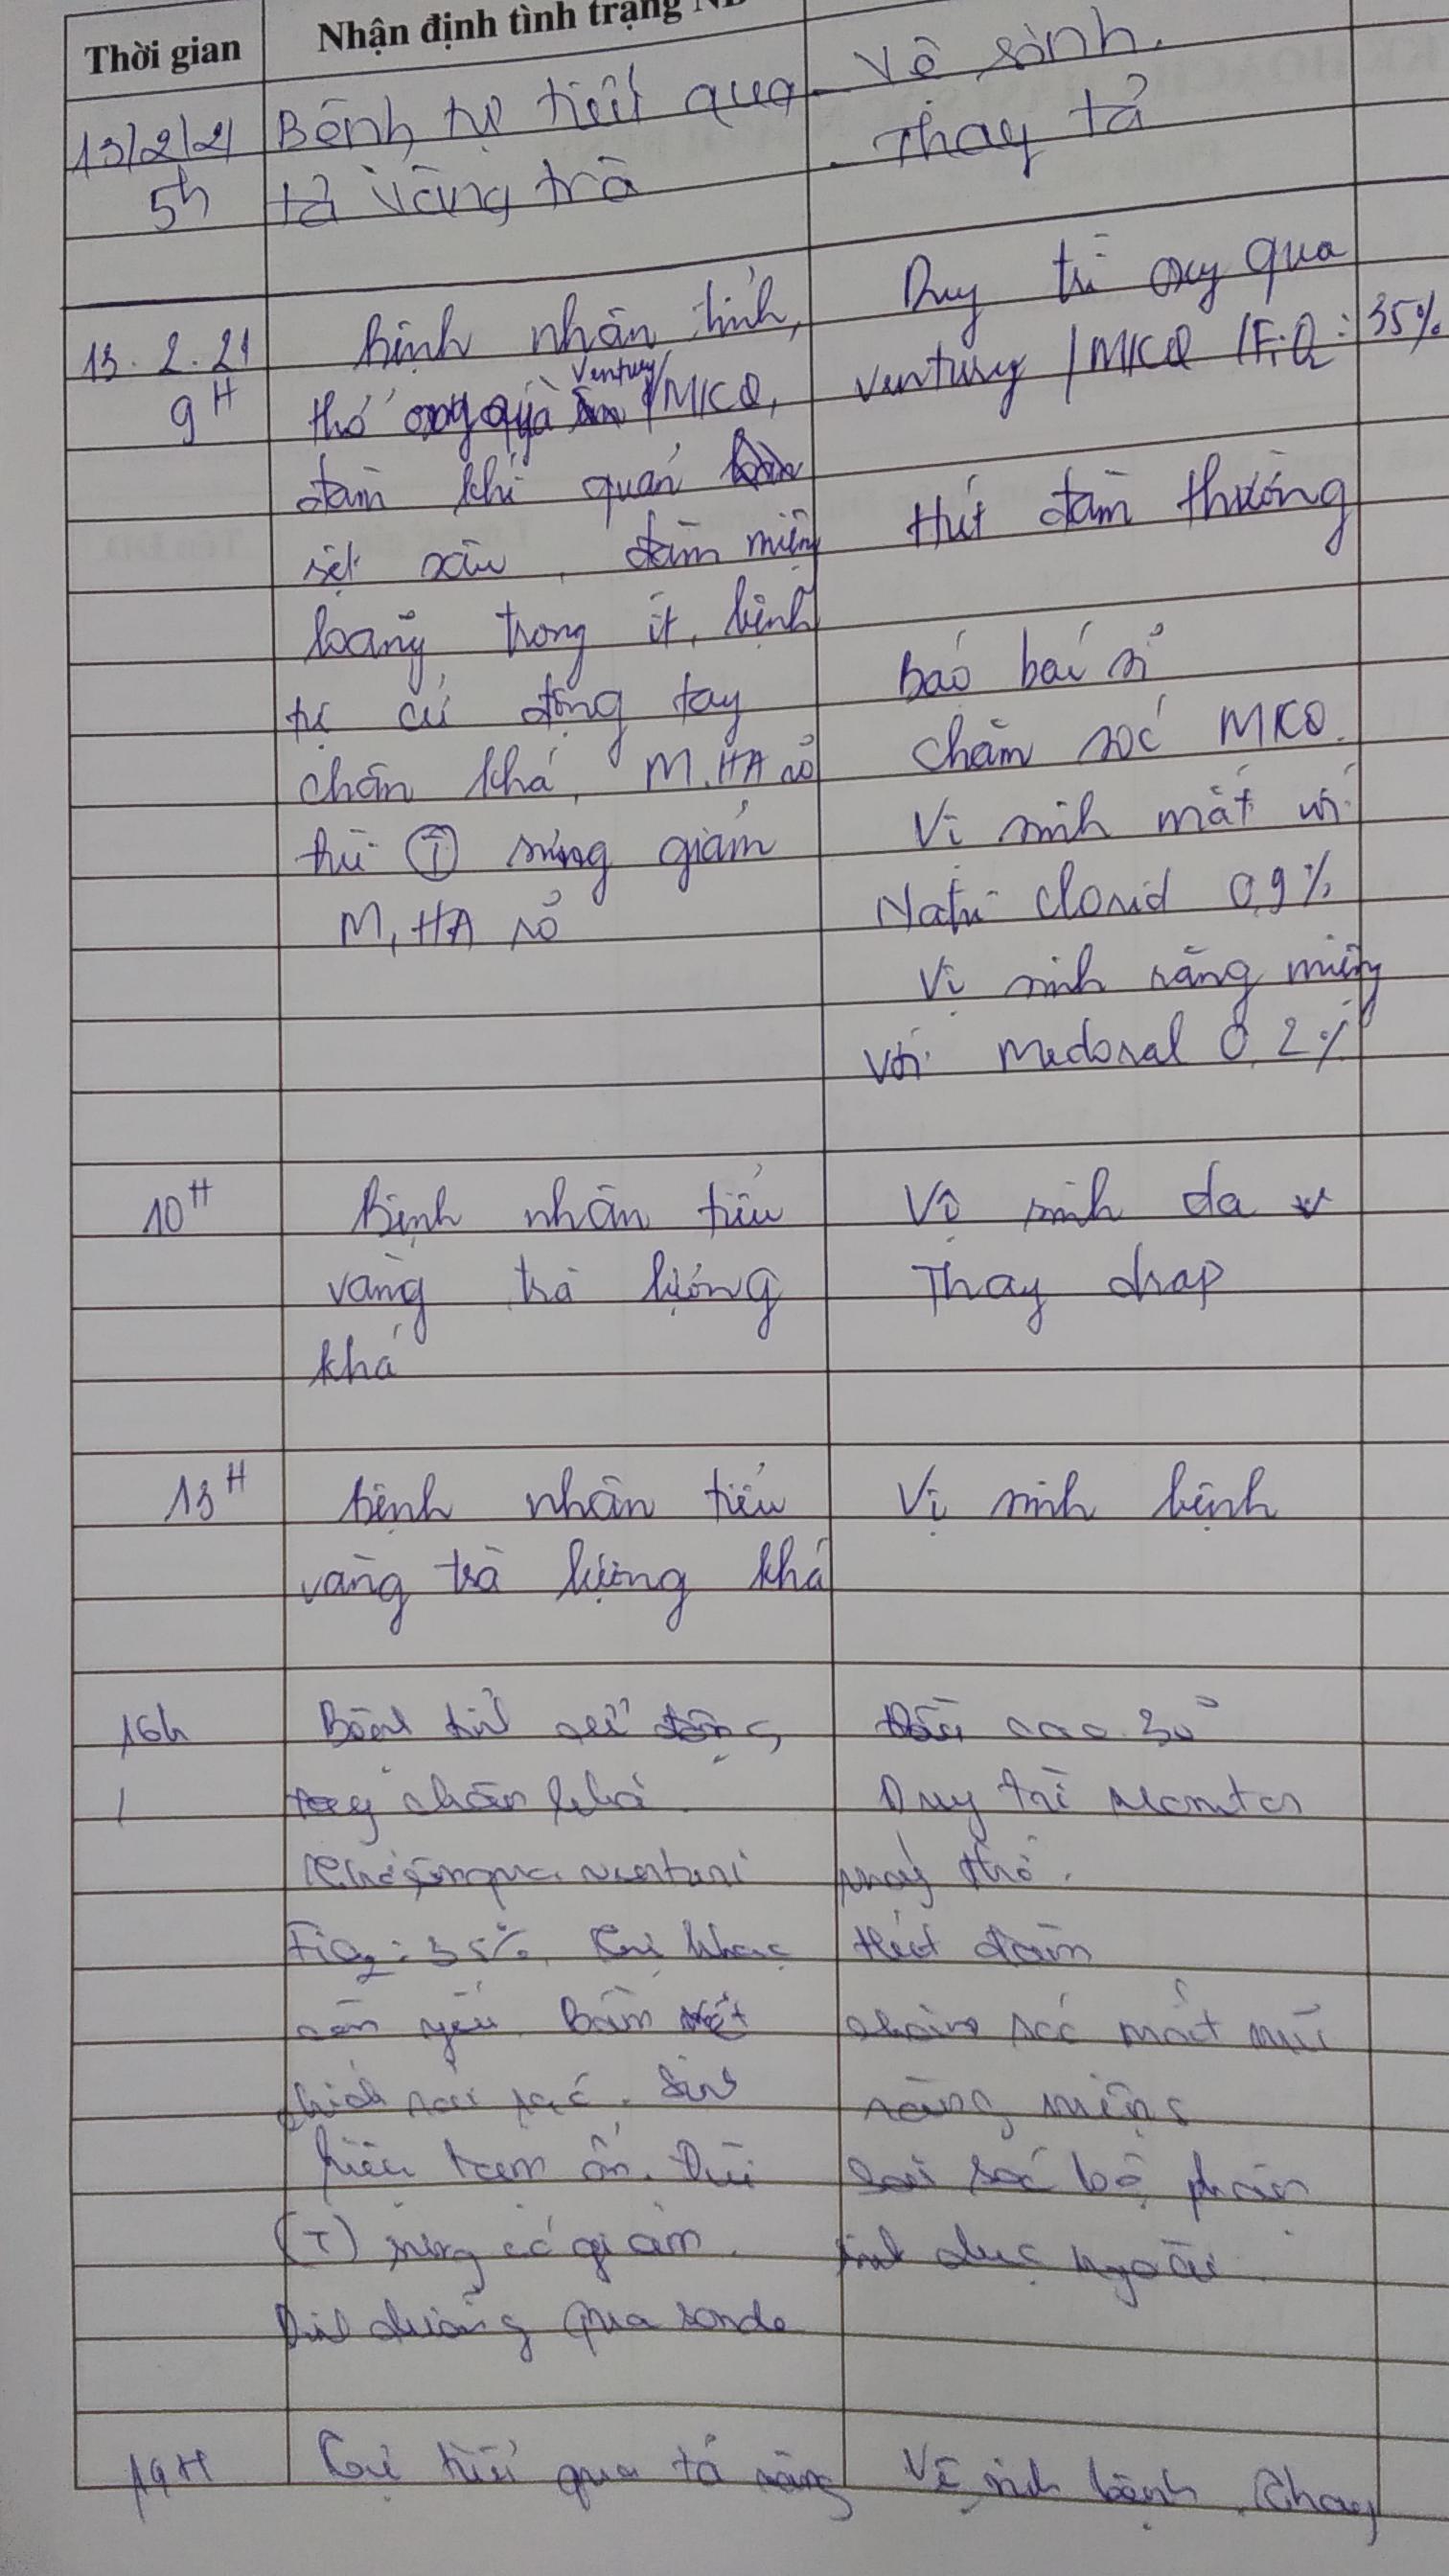 Thời gian
Nhận định tình trạng
13/2/21
5h
Bệnh tự tiểu qua
tả vàng trà
- Vệ sinh.
- Thay tả
13.2.21
9H
Bệnh nhân tỉnh,
thở oxy qua ventury/MKQ,
đàm khí quản
sệt xấu, đàm miệng
loãng trong ít, bệnh
tự cử động tay
chân khá, M, HA rõ
Đùi (T) sưng giảm
M, HA rõ
Duy trì oxy qua
ventury /MKQ (FiO2: 35%
Hút đàm thường
báo bác sĩ
chăm sóc MKQ.
Vệ sinh mắt với
Natri clorid 0,9%
Vệ sinh răng miệng
với Medoral 0,2%
10H
Bệnh nhân tiểu
vàng trà lượng
khá
Vệ sinh da
Thay drap
13H
Bệnh nhân tiểu
vàng trà lượng khá
Vệ sinh bệnh
16h
Bệnh tự cử động
tay chân khá.
qua venturi
FiO2: 35%. Tự khạc
còn yếu. Đàm sệt
Sinh
hiệu tạm ổn. Đùi
(T) sưng có giảm.
Dinh dưỡng qua sonde
Đầu cao 30°
Duy trì Monitor
máy thở.
Hút đàm
chăm sóc mắt mũi
răng miệng
săn sóc bộ phận
sinh dục ngoài.
19H
Tự tiểu qua tả vàng
Vệ sinh bệnh. Thay